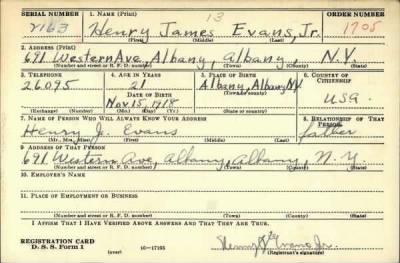 SERIAL NUMBER 1. NAME (Print) 13 ORDER NUMBER
2163 Henry James Evans, Jr. 1705
(First) (Middle) (Last)
2. ADDRESS (Print)
691 Western Ave Albany, Albany N.Y
(Number and street or R. F. D. number) (Town) (County) (State)
3. TELEPHONE 4. AGE IN YEARS 5. PLACE OF BIRTH 6. COUNTRY OF CITIZENSHIP
26095 21 Albany, Albany N.Y.
DATE OF BIRTH (Town) (County)
Nov. 15, 1918 USA.
(Exchange) (Number) (Mo.) (Day) (Yr.) (State or country)
7. NAME OF PERSON WHO WILL ALWAYS KNOW YOUR ADDRESS 8. RELATIONSHIP OF THAT PERSON
Henry J. Evans father
(Mr., Mrs., Miss) (First) (Middle) (Last)
9. ADDRESS OF THAT PERSON
691 Western Ave, Albany, Albany, N. Y.
(Number and street or R. F. D. number) (Town) (County) (State)
10. EMPLOYER'S NAME
11. PLACE OF EMPLOYMENT OR BUSINESS
(Number and street or R. F. D. number) (Town) (County) (State)
I AFFIRM THAT I HAVE VERIFIED ABOVE ANSWERS AND THAT THEY ARE TRUE.
REGISTRATION CARD
D. S. S. Form 1 (over) 16—17105 Henry J. Evans Jr.
(Registrant's signature)